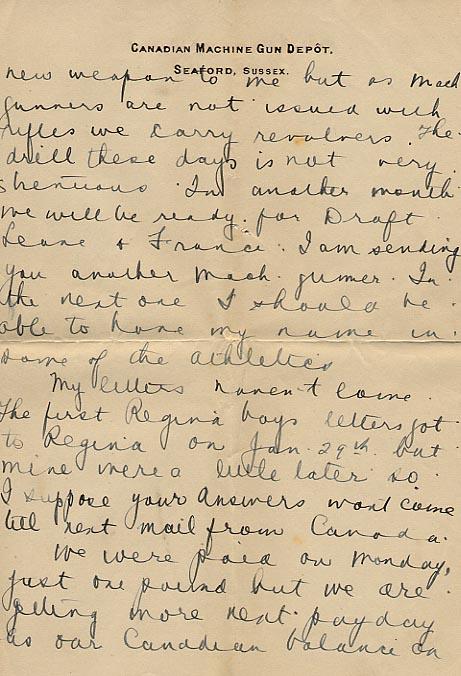 CANADIAN MACHINE GUN DEPÔT,
SEAFORD, SUSSEX.
new weapon to me but as Mach
gunners are not issued with
rifles we carry revolvers. The
drill these days is not very
strenuous. In another month
we will be ready for Draft
Leave & France. I am sending
you another Mach. gunner. In
the next one I should be
able to have my name in
some of the athletics
My letters haven't come.
The first Regina boys letters got
to Regina on Jan. 29th but
mine were a little later so
I suppose your answers wont come
till next mail from Canada.
We were paid on Monday,
just one pound but we are
getting more next payday
as our Canadian balance on